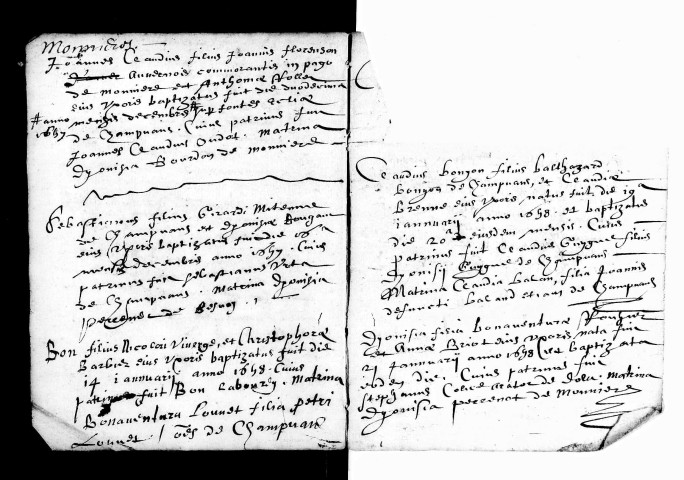 Monnieres
Joannes Claudius filius Joannis florenson
commorantis in pago
de monniere et Anthoniae Rolle
eius uxoris baptizatus fuit die duodecima
# anno mensis decembris # sup fontes
1657
de Champvans. Cuius patrinus fuit
Joannes Claudius Oudot. Matrina
Dyonisia Bourdon de monniere
Sebastianus filius Girardi
de Champvans et Dyonisiae
eius uxoris baptizatus fuit die 16a
mensis decembris anno 1657. Cuius
patrinus fuit Sebastianus
de Champvans. Matrina Dyonisia
perrenet de
Bon filius Nicolai Viverge, et Christophorae
Barbier eius uxoris baptizatus fuit die
14 ianuarii anno 1658. Cuius
patrinus fuit Bon Labourey. Matrina
Bonaventura Louvet filia petri
Louvet. oes de Champvans
Claudius bongon filius balthazard
bongon de Champvans, et Claudiae
brenne eius uxoris natus fuit die 19a
ianuarii anno 1658. et baptizatus
die 20a eiusdem mensis. Cuius
patrinus fuit Claudius Guygue filius
Dyonisii Guygue de Champvans
Matrina Claudia balan, filia Joannis
defuncti baland etiam de Champvans
Dyonisia filia Bonaventurae
et Annae Briot eius uxoris nata fuit
21 Januarii anno 1658 et baptizata
eodem die. Cuius patrinus fuit
stephanus de dola. Matrina
Dyonisia perrenot de Monniere